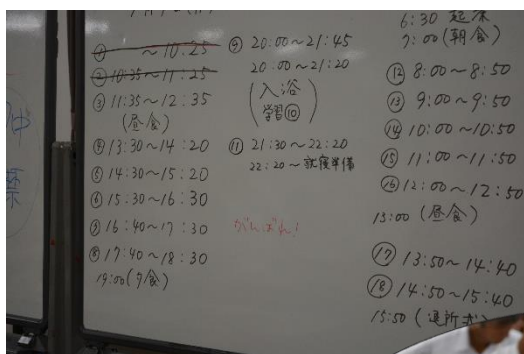 ① ~10:25
② 10:35~11:25
③ 11:35~12:35
(昼食)
④ 13:30~14:20
⑤ 14:30~15:20
⑥ 15:30~16:30
⑦ 16:40~17:30
⑧ 17:40~18:30
19:00(夕食)
⑨ 20:00~21:45
20:00~21:20
(入浴
学習⑩)
⑪ 21:30~22:20
22:20~就寝準備
がんばれ!
6:30 起床
7:00(朝食)
⑫ 8:00~8:50
⑬ 9:00~9:50
⑭ 10:00~10:50
⑮ 11:00~11:50
⑯ 12:00~12:50
13:00(昼食)
⑰ 13:50~14:40
⑱ 14:50~15:40
15:50(退所式